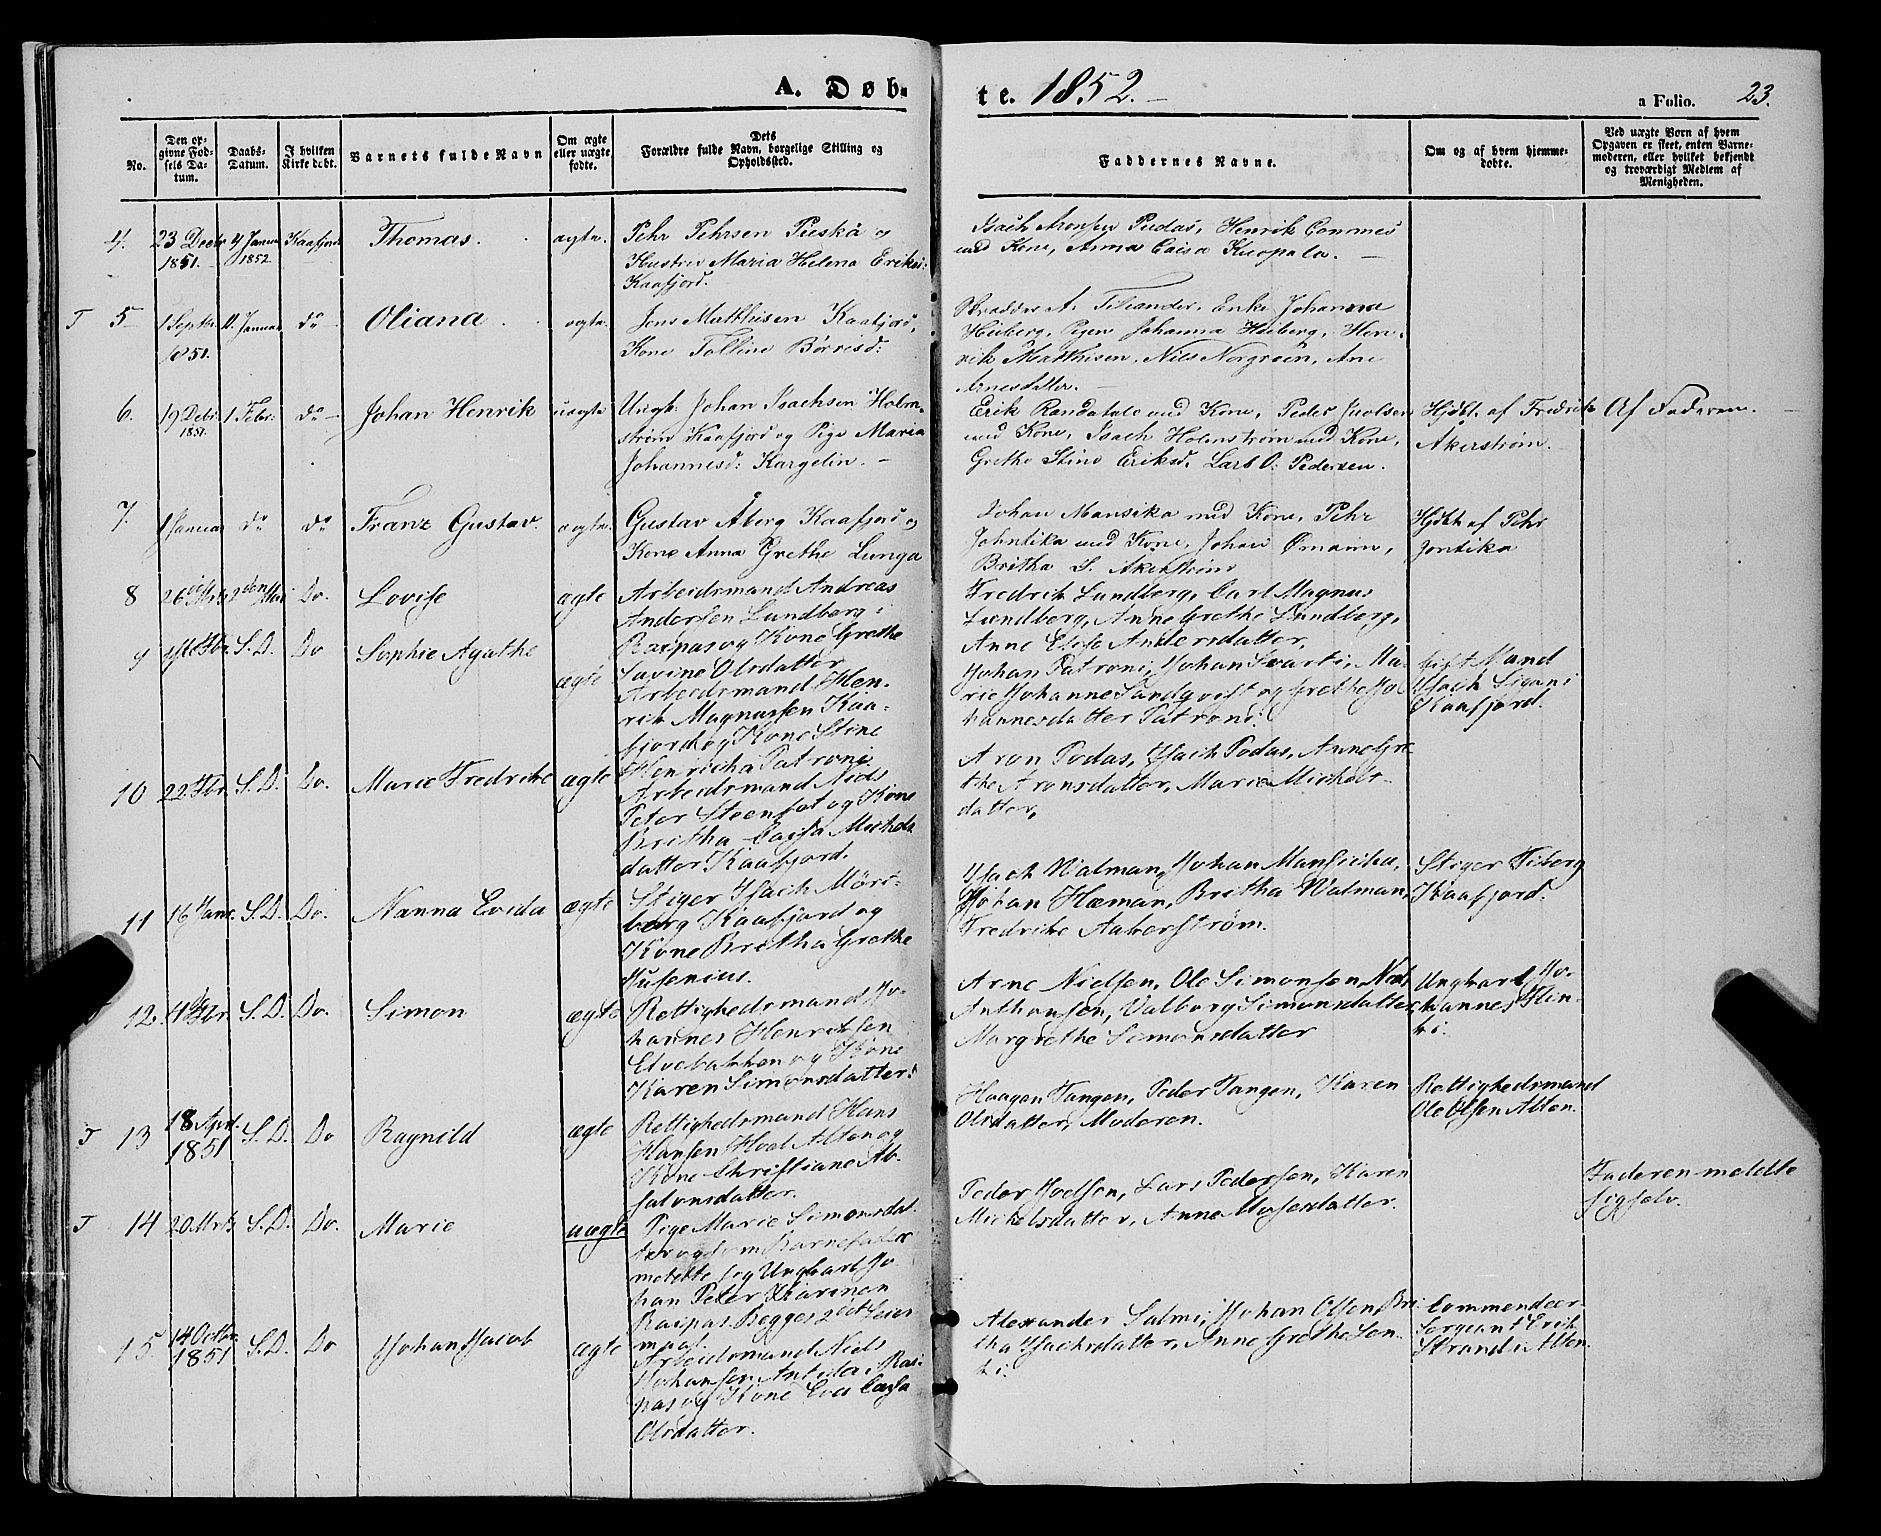 A. Døb-
te. 1852.
a Folio. 23.
No.
Den opgivne Fødsels Datum.
Daabs-Datum.
I hvilken Kirke døbt.
Barnets fulde Navn
Om ægte eller uægte fødte.
Dets Forældre fulde Navn, borgelige Stilling og Opholdssted.
Faddernes Navne.
Om og af hvem hjemmedøbte.
Ved uægte Børn af hvem Opgaven er skeet, enten Barnemoderen, eller hvilket bekjendt og troværdigt Medlem af Menigheden.
4.
23 Decbr
1851.
4 Januar
1852
Kaafjord
Thomas.
ægte.
Pehr Pehrsen Pieskä og
Hustru Maria Helena Eriksd:
Kaafjord.
Isach Aronsen Pudas, Henrik Commes
med Kone, Anna Caisa Kuopala.
T 5
1 Septbr
1851.
11. Januar
do
Oliana
ægte.
Jens Matthisen Kaafjord,
Kone Tolline Børresd:
Skrædder A. Titiander, Enke Johanna
Heiberg, Pigen Johanna Heiberg, Hen-
rik Matthisen, Nils Norgreen, Ane
Arnesdatter.
6.
19 Debr
1851.
1 Febr:
do
Johan Henrik
uægte
Ungk. Johan Isachsen Holm-
strøm Kaafjord og Pige Maria
Johannesd: Kargelin.
Erik Randatalo med Kone, Peder Joolsen
med Kone, Isach Holmstrøm med Kone,
Grethe Stine Eriksd, Lars O. Pedersen.
Hjdbt. af Fredrik
Åkerstrøm.
Af Faderen.
7.
1 Januar
do
do
Franz Gustav.
ægte.
Gustav Åberg Kaafjord og
Kone Anna Grethe Lunga
Johan Mansika med Kone, Pehr
Johntika med Kone, Johan Ømann,
Britha S. Åkerstrøm
Hjdbt af Pehr
Jontika
8
26de Mrts
2den Mai
Do.
Lovise
ægte
Arbeidsmand Andreas
Andersen Lundberg i
Raipas og Kone Grethe
Savine Olsdatter
Fredrik Lundberg, Carl Magnus
Lundberg, Anne Grethe Lundberg,
Anne Elise Andersdatter,
9
S. D.
Do
Sophie Agathe
ægte
Arbeidsmand Hen-
rik Magnussen Kaa-
fjord og Kone Stine
Henricha Patroni.
Johan Patroni, Johan Svarti, Ma-
rie Johanne Sandqvist og Grethe Jo-
hannesdatter Patroni.
Gift Mand
Isach Sigani
Kaafjord.
10
22 Fbr.
S. D.
Do.
Marie Fredrike
ægte
Arbeidsmand Niels
Peter Steensot og Kone
Britha Cajsa Michels
datter Kaafjord.
Aron Podas, Isach Podas, Anne Gre
the Aronsdatter, Marie Michels-
datter,
11
16 Janr.
S. D.
Do.
Nanna Evida
ægte
Stiger Isach Mört-
berg Kaafjord og
Kone Bretha Grethe
Kusenius.
Isach Walman, Johan Mansicka,
Johan Hæman, Bretha Walman,
Fredrike Aakerstrøm.
Stiger Fiberg
Kaafjord.
12
4de Fbr.
S. D.
Do.
Simon
ægte
Rettighedsmand Jo-
hannes Henriksen
Elvebakken og Kone
Karen Simonsdatter.
Arne Nielsen, Ole Simonsen, Niels
Anthonsen, Valborg Simonsdatter,
Margrethe Simonsdatter
Ungkarl Jo-
hannes Hin-
ki.
T 13
18 Apr.
1851
S. D.
Do
Ragnild
ægte
Rettighedsmand Hans
Hansen Hoel Alten og
Kone Christiane Ab-
salonsdatter.
Haagen Tangen, Peder Tangen, Karen
Olsdatter, Moderen.
Rettighedsmand
Ole Olsen Alten.
T 14
20 Mrts
S. D.
Do.
Marie
uægte
Pige Marie Simonsdat-
ter og som Barnefader
meldte sig Ungkarl Jo-
han Peter Karinen
Raipas. Begges 2det Leier
maal.
Peder Joelsen, Lars Pedersen, Karen
Michelsdatter, Anne Mosesdatter.
Faderen meldte
sig selv.
15
14 Octbr.
1851
S. D.
Do
Johan Jacob
ægte
Arbeidsmand Niels
Johansen Antila, Rai-
pas og Kone Eva Cajsa
Olsdatter.
Alexander Salmi, Johan Olsen, Bri
tha Isachsdatter, Anne Grethe Jon-
ti.
Commendeer
Sergeant Erik
Strand i Alten.